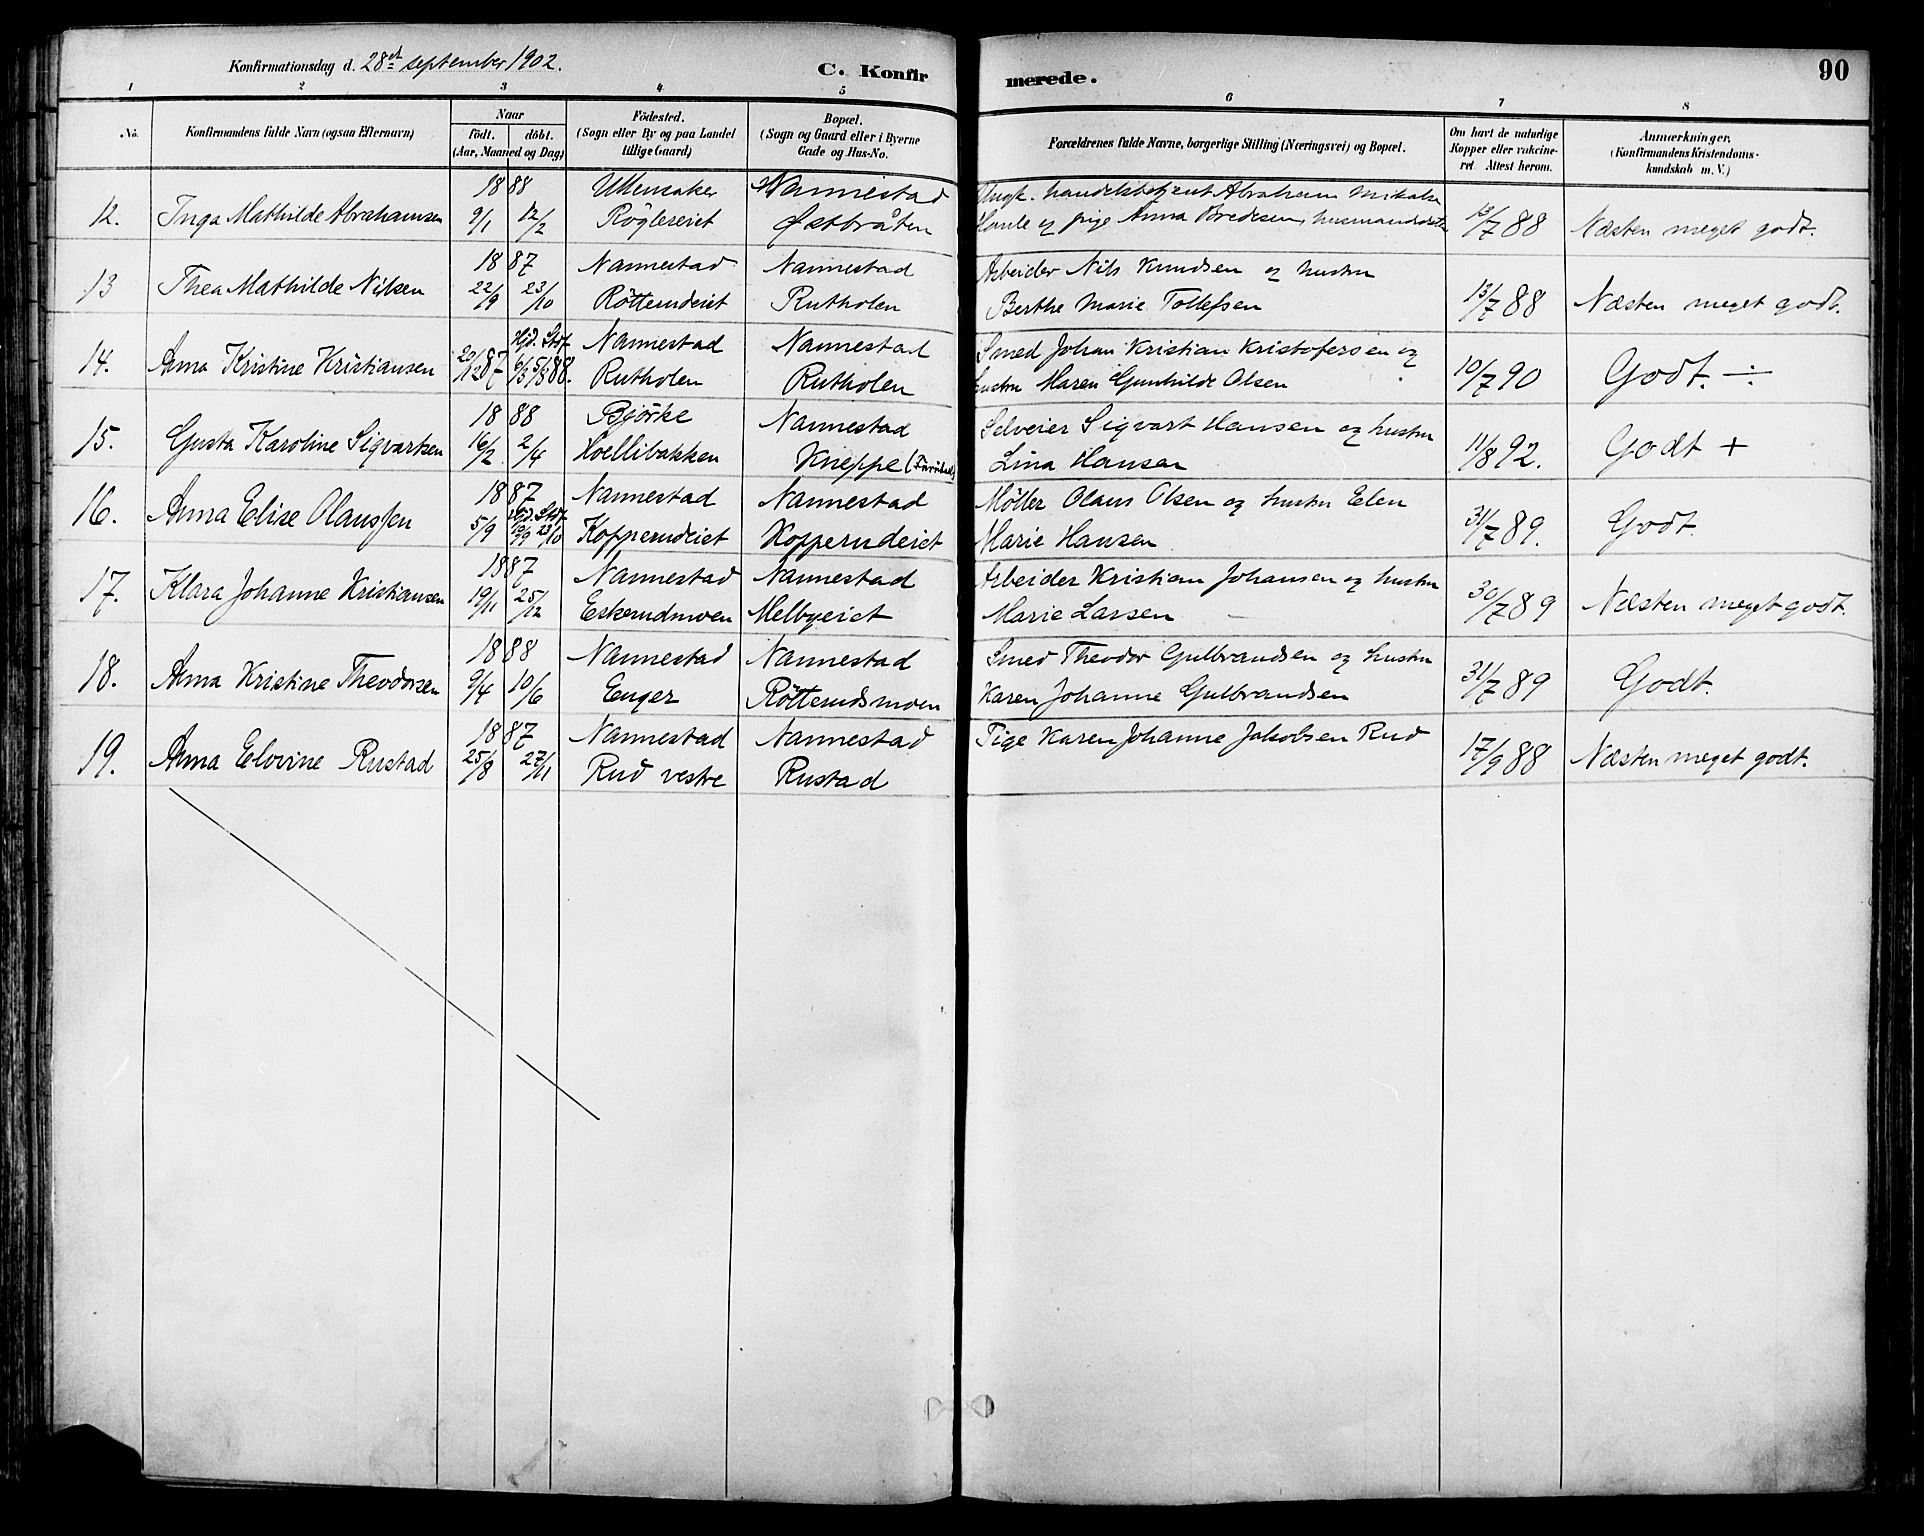 Konfirmationsdag d. 28de september 1902.
C. Konfirmerede.
90
1 2 3 4 5 6 7 8
No.
Konfirmandens fulde Navn (ogsaa Efternavn)
Naar
födt. döbt.
(Aar, Maaned og Dag)
Födested.
(Sogn eller By og paa Landet
tillige Gaard)
Bopæl.
(Sogn og Gaard eller i Byerne
Gade og Hus-No.
Forældrenes fulde Navne, borgerlige Stilling (Næringsvei) og Bopæl.
Om havt de naturlige
Kopper eller vakcine-
ret. Attest herom.
Anmærkninger,
(Konfirmandens Kristendoms-
kundskab m. V.)
12. Inga Mathilde Abrahamsen
1888
9/1 12/2
Ullensaker
Röglereiet
Nannestad
Østbråten
Ungk. handelsbetjent Abraham Mikalsen
og pige Anna Bredesen, husmandsdatter
13/7 88
Næsten meget godt.
13 Thea Mathilde Nilsen
1887
22/9 23/10
Nannestad
Rötterudeiet
Nannestad
Rutholen
Arbeider Nils Knudsen og hustru
Berthe Marie Tollefsen
13/7 88
Næsten meget godt.
14. Anna Kristine Kristiansen
20/12 87
Hjd. Stdf.
6/3 5/3 88.
Nannestad
Rutholen
Nannestad
Rutholen
Smed Johan Kristian Kristofersen og
hustru Maren Gunhilde Olsen
10/7 90
Godt. ÷
15. Gusta Karoline Sigvartsen
1888
16/2 2/4
Bjørke
Hoellibakken
Nannestad
Kneppe
Selveier Sigvart Hansen og hustru
Lina Hansen
11/8 92.
Godt +
16. Anna Elise Olaussen
1887
Hjd. Stdf.
5/9 19/9 23/10
Nannestad
Kopperudeiet
Nannestad
Kopperudeiet
Møller Olaus Olsen og hustru Elen
Marie Hansen
31/7 89.
Godt.
17. Klara Johanne Kristiansen
1887
19/11 25/12
Nannestad
Eskerudmoen
Nannestad
Melbyeiet
Arbeider Kristian Johansen og hustru
Marie Larsen
30/7 89
Næsten meget godt.
18. Anna Kristine Theodorsen
1888
9/4 10/6
Nannestad
Enger
Nannestad
Rötterudsmoen
Smed Theodor Gulbrandsen og hustru
Karen Johanne Gulbrandsen
31/7 89
Godt.
19. Anna Elovine Rustad
1887
25/8 27/11
Nannestad
Rud vestre
Nannestad
Rustad
Pige Karen Johanne Jakobsen Rud
17/9 88
Næsten meget godt.